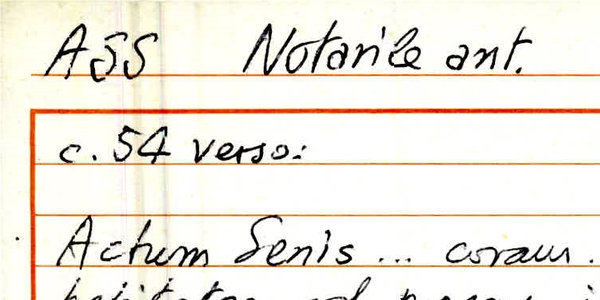 ASS Notarile ant.
c. 54 verso:
Actum Senis ... coram .